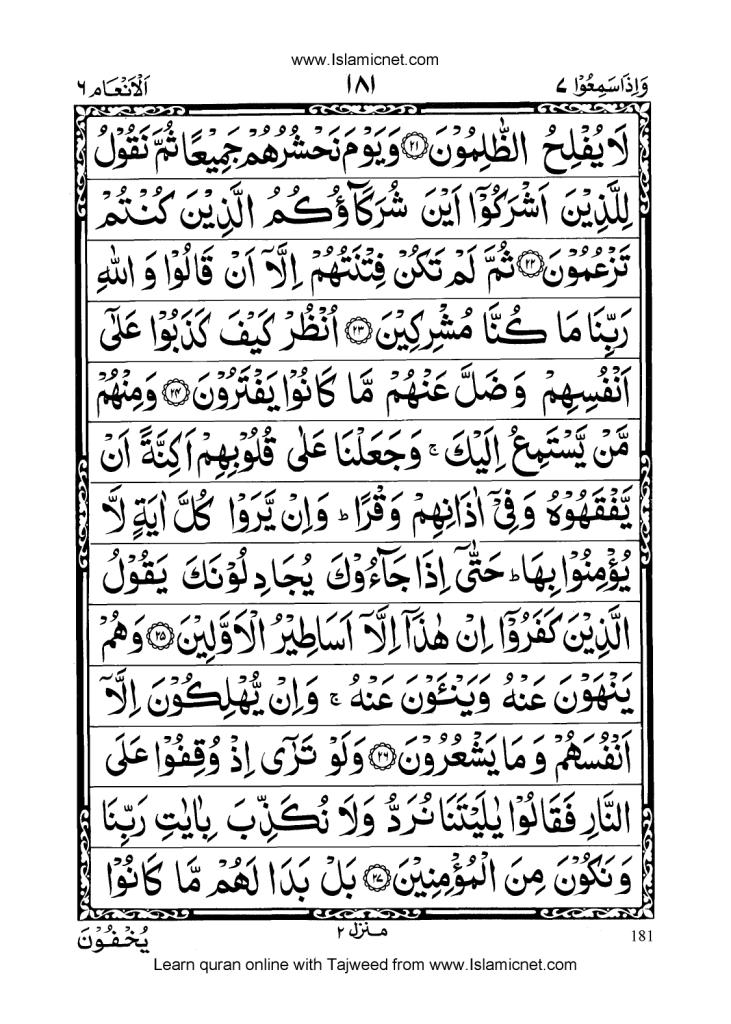 www.Islamicnet.com
وَاِذَاسَمِعُوْا ٧
١٨١
اَلْاَنْعَام ٦
لَا يُفْلِحُ الظّٰلِمُوْنَ ﴿۲۱﴾ وَيَوْمَ نَحْشُرُهُمْ جَمِيْعًا ثُمَّ نَقُوْلُ
لِلَّذِيْنَ اَشْرَكُوْٓا اَيْنَ شُرَكَآؤُكُمُ الَّذِيْنَ كُنْتُمْ
تَزْعُمُوْنَ ﴿۲۲﴾ ثُمَّ لَمْ تَكُنْ فِتْنَتُهُمْ اِلَّآ اَنْ قَالُوْا وَ اللّٰهِ
رَبِّنَا مَا كُنَّا مُشْرِكِيْنَ ﴿۲۳﴾ اُنْظُرْ كَيْفَ كَذَبُوْا عَلٰٓى
اَنْفُسِهِمْ وَ ضَلَّ عَنْهُمْ مَّا كَانُوْا يَفْتَرُوْنَ ﴿۲۴﴾ وَمِنْهُمْ
مَّنْ يَّسْتَمِعُ اِلَيْكَ ۚ وَجَعَلْنَا عَلٰى قُلُوْبِهِمْ اَكِنَّةً اَنْ
يَّفْقَهُوْهُ وَ فِيْٓ اٰذَانِهِمْ وَقْرًا ؕ وَ اِنْ يَّرَوْا كُلَّ اٰيَةٍ لَّا
يُؤْمِنُوْا بِهَا ؕ حَتّٰٓى اِذَا جَآءُوْكَ يُجَادِلُوْنَكَ يَقُوْلُ
الَّذِيْنَ كَفَرُوْٓا اِنْ هٰذَآ اِلَّآ اَسَاطِيْرُ الْاَوَّلِيْنَ ﴿۲۵﴾ وَهُمْ
يَنْهَوْنَ عَنْهُ وَيَنْـَٔوْنَ عَنْهُ ۚ وَاِنْ يُّهْلِكُوْنَ اِلَّآ
اَنْفُسَهُمْ وَ مَا يَشْعُرُوْنَ ﴿۲۶﴾ وَلَوْ تَرٰٓى اِذْ وُقِفُوْا عَلَى
النَّارِ فَقَالُوْا يٰلَيْتَنَا نُرَدُّ وَلَا نُكَذِّبَ بِاٰيٰتِ رَبِّنَا
وَ نَكُوْنَ مِنَ الْمُؤْمِنِيْنَ ﴿۲۷﴾ بَلْ بَدَا لَهُمْ مَّا كَانُوْا
181
منزل ٢
يُخْفُوْنَ
Learn quran online with Tajweed from www.Islamicnet.com